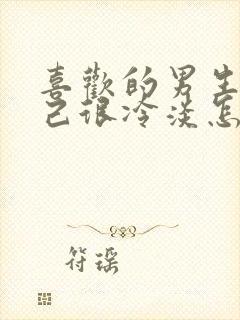 喜歡的男生
己很冷淡怎
符瑶